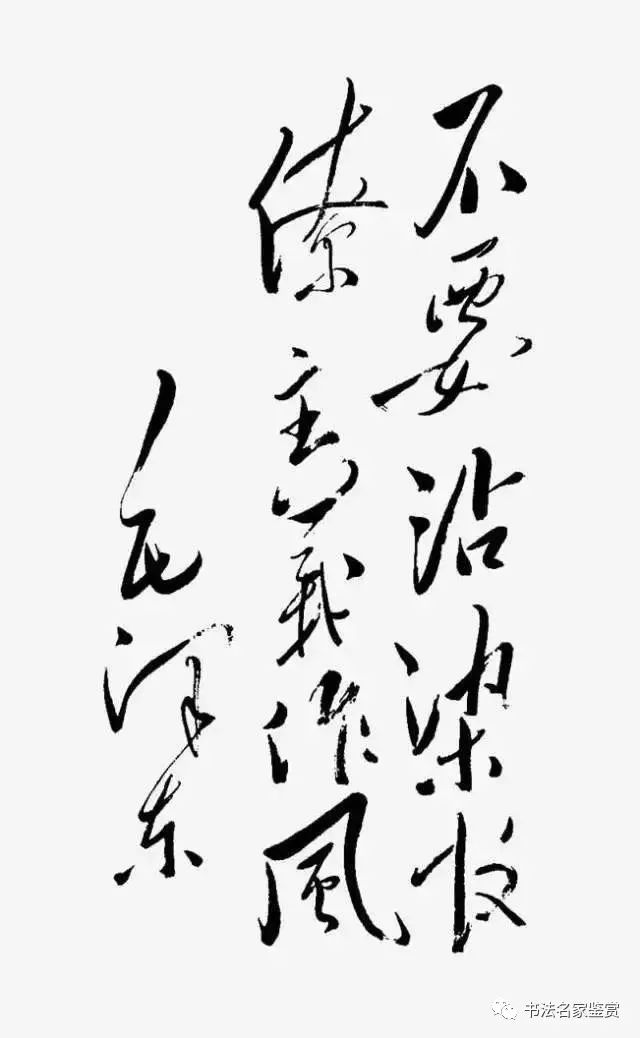 不要沾染官
僚主義作風
毛泽东
书法名家鉴赏